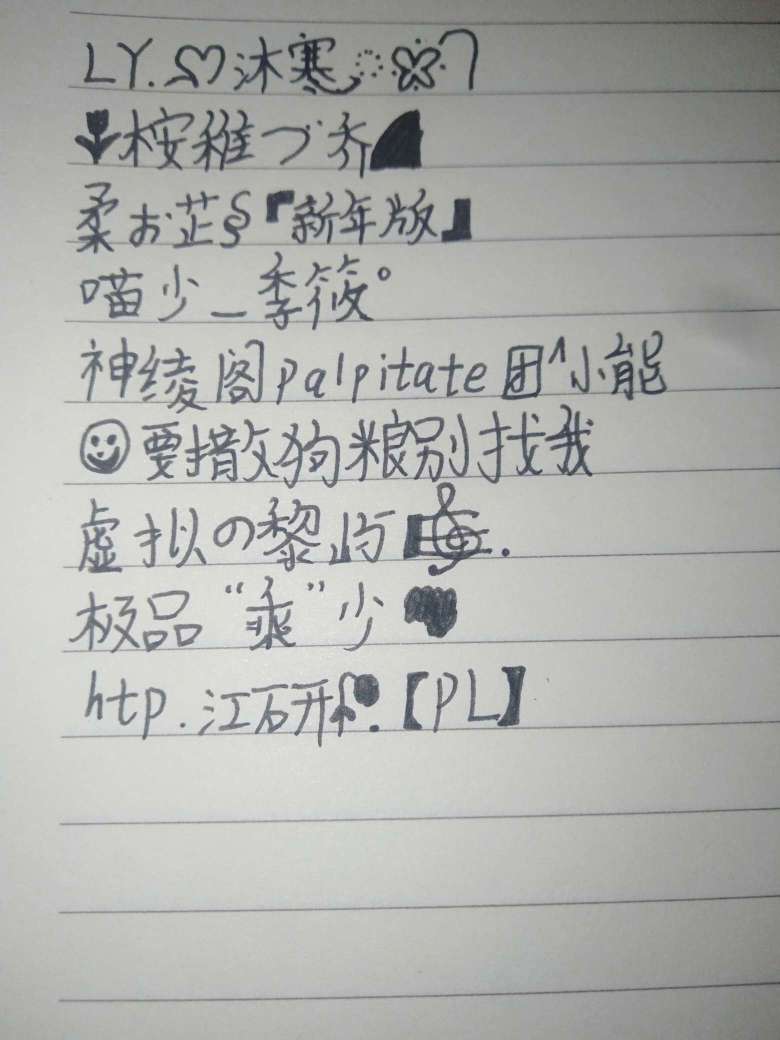 LY.ღ沐寒ꦿ҉්᭄
🌷桉稚づ乔◢
柔お芷§『新年版』
喵少_季筱°
神绫阁palpitate团^小能
☺要撒狗粮别找我
虚拟の黎屿【🎼.
极品“乘”少
http.江研.【PL】